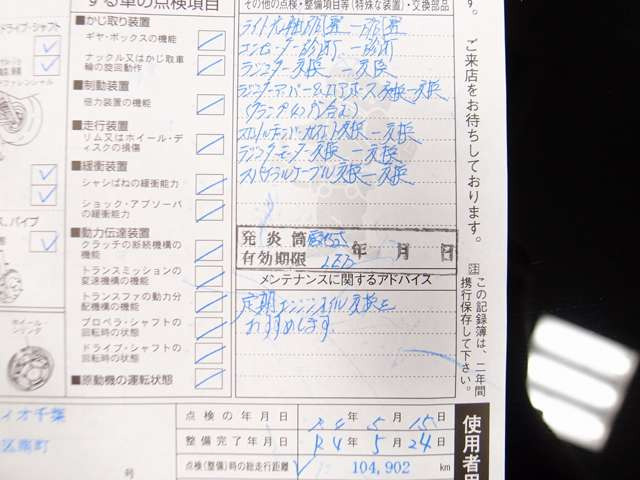 する車の点検項目
■かじ取り装置
ギヤ・ボックスの機能
ナックル又はかじ取車
輪の旋回動作
■制動装置
倍力装置の機能
■走行装置
リム又はホイール・デ
ィスクの損傷
■緩衝装置
シャシばねの緩衝能力
ショック・アブソーバ
の緩衝能力
■動力伝達装置
クラッチの断続機構の
機能
トランスミッションの
変速機構の機能
トランスファの動力分
配機構の機能
プロペラ・シャフトの
回転時の状態
ドライブ・シャフトの
回転時の状態
■原動機の運転状態
その他の点検・整備項目等(特殊な装置)・交換部品
ラジエター交換 ー交換
ラジエターアッパー&ロアホース交換ー交換
スパイラルケーブル交換ー交換
発炎筒 年 月 日
有効期限 LED
メンテナンスに関するアドバイス
定期エンジンオイル交換を
おすすめします。
す。 ご来店をお待ちしております。
注 この記録簿は、二年間
携行保存して下さい。
ドライブ・シャフト
ス、パイプ
ホイール・
シリンダ
イオ千葉
号
点検の年月日 R4年5月15日
整備完了年月日 R4年5月24日
点検(整備)時の総走行距離 104,902 km
使用者用